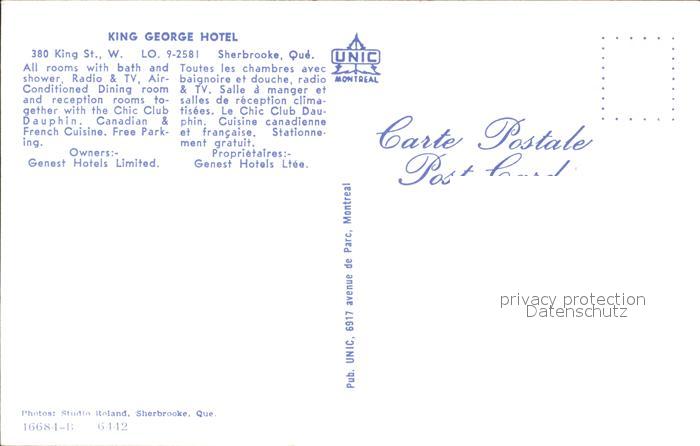 KING GEORGE HOTEL
380 King St., W. LO. 9-2581 Sherbrooke, Qué.
All rooms with bath and
shower, Radio & TV, Air-
Conditioned Dining room
and reception rooms to-
gether with the Chic Club
Dauphin. Canadian &
French Cuisine. Free Park-
ing.
Owners:-
Genest Hotels Limited.
Toutes les chambres avec
baignoire et douche, radio
& TV. Salle à manger et
salles de réception clima-
tisées. Le Chic Club Dau-
phin. Cuisine canadienne
et française. Stationne-
ment gratuit.
Propriétaires:-
Genest Hotels Ltée.
UNIC
MONTREAL
Carte Postale
Post Card
Pub. UNIC, 6917 avenue de Parc, Montreal
privacy protection
Datenschutz
Photos: Studio Roland, Sherbrooke, Que.
16684-B 6442